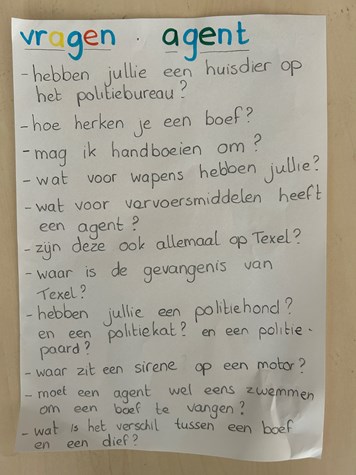 vragen . agent
- hebben jullie een huisdier op
het politiebureau?
- hoe herken je een boef?
- mag ik handboeien om?
- wat voor wapens hebben jullie?
- wat voor varvoersmiddelen heeft
een agent?
- zijn deze ook allemaal op Texel?
- waar is de gevangenis van
Texel?
- hebben jullie een politiehond?
en een politiekat? en een politie-
paard?
- waar zit een sirene op een motor?
- moet een agent wel eens zwemmen
om een boef te vangen?
- wat is het verschil tussen een boef
en een dief?